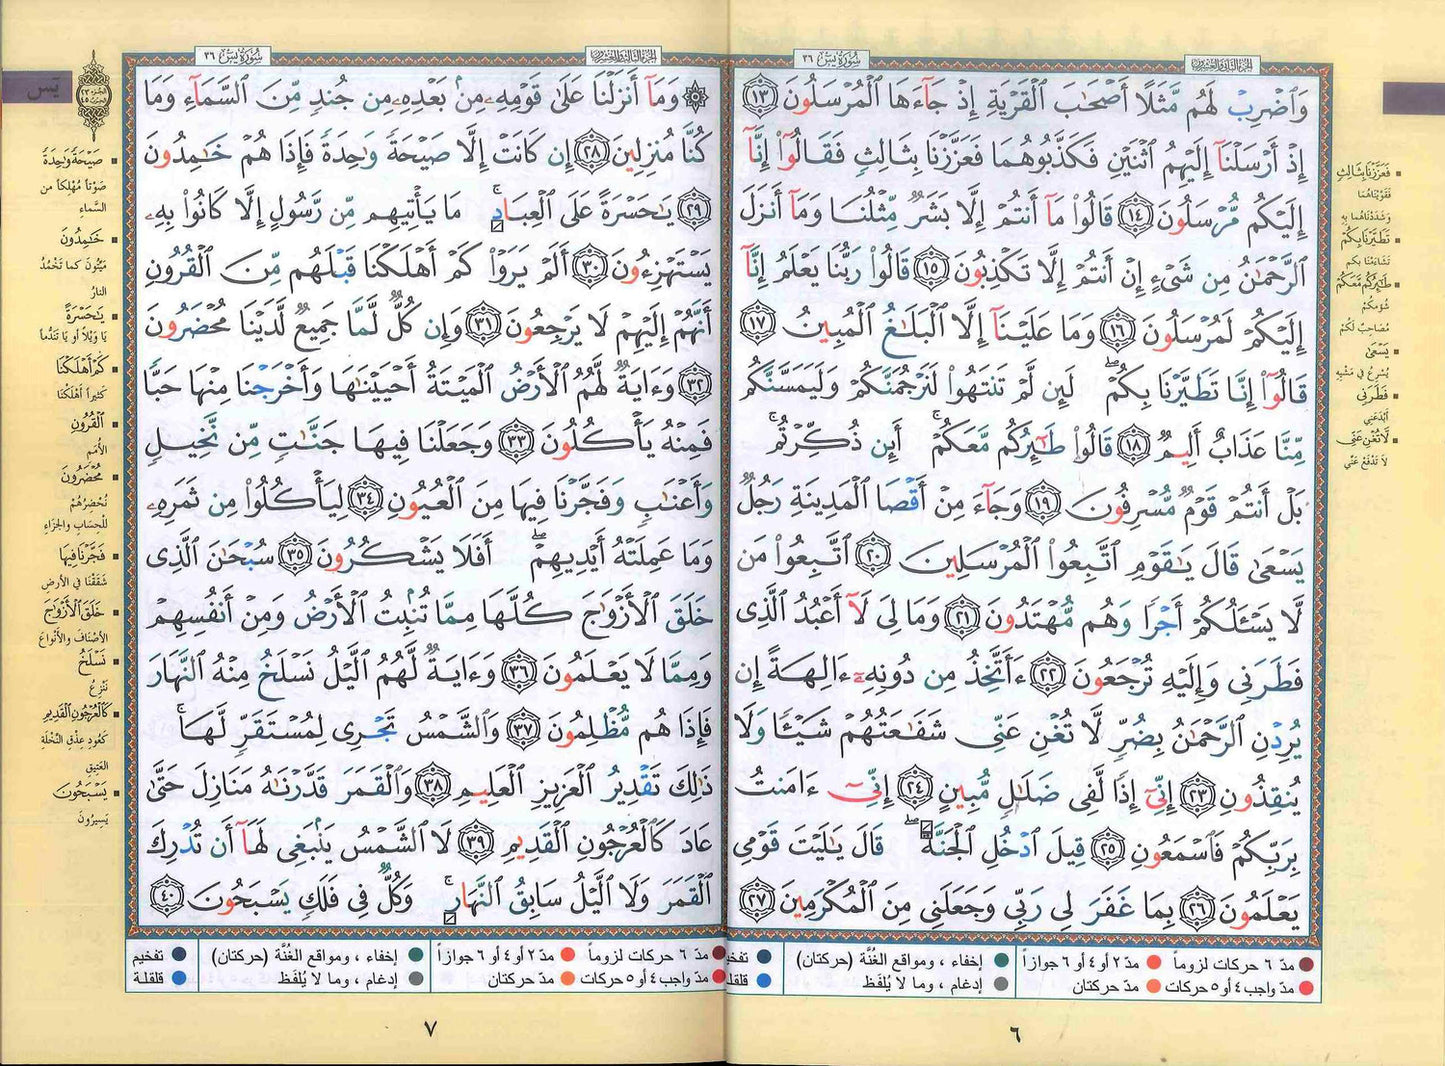 سُورَةُ يسٓ ٣٦
الجزء الثاني والعشرون
وَٱضْرِبْ لَهُم مَّثَلًا أَصْحَٰبَ ٱلْقَرْيَةِ إِذْ جَآءَهَا ٱلْمُرْسَلُونَ ١٣
إِذْ أَرْسَلْنَآ إِلَيْهِمُ ٱثْنَيْنِ فَكَذَّبُوهُمَا فَعَزَّزْنَا بِثَالِثٍ فَقَالُوٓا۟ إِنَّآ
إِلَيْكُم مُّرْسَلُونَ ١٤ قَالُوا۟ مَآ أَنتُمْ إِلَّا بَشَرٌ مِّثْلُنَا وَمَآ أَنزَلَ
ٱلرَّحْمَٰنُ مِن شَىْءٍ إِنْ أَنتُمْ إِلَّا تَكْذِبُونَ ١٥ قَالُوا۟ رَبُّنَا يَعْلَمُ إِنَّآ
إِلَيْكُمْ لَمُرْسَلُونَ ١٦ وَمَا عَلَيْنَآ إِلَّا ٱلْبَلَٰغُ ٱلْمُبِينُ ١٧
قَالُوٓا۟ إِنَّا تَطَيَّرْنَا بِكُمْ ۖ لَئِن لَّمْ تَنتَهُوا۟ لَنَرْجُمَنَّكُمْ وَلَيَمَسَّنَّكُم
مِّنَّا عَذَابٌ أَلِيمٌ ١٨ قَالُوا۟ طَٰٓئِرُكُم مَّعَكُمْ ۚ أَئِن ذُكِّرْتُم ۚ
بَلْ أَنتُمْ قَوْمٌ مُّسْرِفُونَ ١٩ وَجَآءَ مِنْ أَقْصَا ٱلْمَدِينَةِ رَجُلٌ
يَسْعَىٰ قَالَ يَٰقَوْمِ ٱتَّبِعُوا۟ ٱلْمُرْسَلِينَ ٢٠ ٱتَّبِعُوا۟ مَن
لَّا يَسْـَٔلُكُمْ أَجْرًا وَهُم مُّهْتَدُونَ ٢١ وَمَا لِىَ لَآ أَعْبُدُ ٱلَّذِى
فَطَرَنِى وَإِلَيْهِ تُرْجَعُونَ ٢٢ ءَأَتَّخِذُ مِن دُونِهِۦٓ ءَالِهَةً إِن
يُرِدْنِ ٱلرَّحْمَٰنُ بِضُرٍّ لَّا تُغْنِ عَنِّى شَفَٰعَتُهُمْ شَيْـًٔا وَلَا
يُنقِذُونِ ٢٣ إِنِّىٓ إِذًا لَّفِى ضَلَٰلٍ مُّبِينٍ ٢٤ إِنِّىٓ ءَامَنتُ
بِرَبِّكُمْ فَٱسْمَعُونِ ٢٥ قِيلَ ٱدْخُلِ ٱلْجَنَّةَ ۖ قَالَ يَٰلَيْتَ قَوْمِى
يَعْلَمُونَ ٢٦ بِمَا غَفَرَ لِى رَبِّى وَجَعَلَنِى مِنَ ٱلْمُكْرَمِينَ ٢٧
فَعَزَّزْنَا بِثَالِثٍ
فَقَوَّيْنَاهُمَا
وَشَدَدْنَاهُمَا بِهِ
تَطَيَّرْنَا بِكُمْ
تَشَاءَمْنَا بكم
طَٰٓئِرُكُم مَّعَكُمْ
شُؤمُكمْ
مُصَاحِبٌ لَكُمْ
يَسْعَىٰ
يُسْرِعُ في مَشْيِهِ
فَطَرَنِى
أَبْدَعَنِي
لَّا تُغْنِ عَنِّى
لَا تَدْفَعْ عَنِّي
مدّ ٦ حركات لزوماً
مدّ ٢ أو ٤ أو ٦ جوازاً
مدّ واجب ٤ أو ٥ حركات
مدّ حركتان
إخفاء ، ومواقع الغُنَّة (حركتان)
إدغام ، وما لا يُلفَظ
قلقلة
٦
سُورَةُ يسٓ ٣٦
الجزء الثالث والعشرون
يسٓ
وَمَآ أَنزَلْنَا عَلَىٰ قَوْمِهِۦ مِنۢ بَعْدِهِۦ مِن جُندٍ مِّنَ ٱلسَّمَآءِ وَمَا
كُنَّا مُنزِلِينَ ٢٨ إِن كَانَتْ إِلَّا صَيْحَةً وَٰحِدَةً فَإِذَا هُمْ خَٰمِدُونَ
٢٩ يَٰحَسْرَةً عَلَى ٱلْعِبَادِ ۚ مَا يَأْتِيهِم مِّن رَّسُولٍ إِلَّا كَانُوا۟ بِهِۦ
يَسْتَهْزِءُونَ ٣٠ أَلَمْ يَرَوْا۟ كَمْ أَهْلَكْنَا قَبْلَهُم مِّنَ ٱلْقُرُونِ
أَنَّهُمْ إِلَيْهِمْ لَا يَرْجِعُونَ ٣١ وَإِن كُلٌّ لَّمَّا جَمِيعٌ لَّدَيْنَا مُحْضَرُونَ
٣٢ وَءَايَةٌ لَّهُمُ ٱلْأَرْضُ ٱلْمَيْتَةُ أَحْيَيْنَٰهَا وَأَخْرَجْنَا مِنْهَا حَبًّا
فَمِنْهُ يَأْكُلُونَ ٣٣ وَجَعَلْنَا فِيهَا جَنَّٰتٍ مِّن نَّخِيلٍ
وَأَعْنَٰبٍ وَفَجَّرْنَا فِيهَا مِنَ ٱلْعُيُونِ ٣٤ لِيَأْكُلُوا۟ مِن ثَمَرِهِۦ
وَمَا عَمِلَتْهُ أَيْدِيهِمْ ۖ أَفَلَا يَشْكُرُونَ ٣٥ سُبْحَٰنَ ٱلَّذِى
خَلَقَ ٱلْأَزْوَٰجَ كُلَّهَا مِمَّا تُنۢبِتُ ٱلْأَرْضُ وَمِنْ أَنفُسِهِمْ
وَمِمَّا لَا يَعْلَمُونَ ٣٦ وَءَايَةٌ لَّهُمُ ٱلَّيْلُ نَسْلَخُ مِنْهُ ٱلنَّهَارَ
فَإِذَا هُم مُّظْلِمُونَ ٣٧ وَٱلشَّمْسُ تَجْرِى لِمُسْتَقَرٍّ لَّهَا ۚ
ذَٰلِكَ تَقْدِيرُ ٱلْعَزِيزِ ٱلْعَلِيمِ ٣٨ وَٱلْقَمَرَ قَدَّرْنَٰهُ مَنَازِلَ حَتَّىٰ
عَادَ كَٱلْعُرْجُونِ ٱلْقَدِيمِ ٣٩ لَا ٱلشَّمْسُ يَنۢبَغِى لَهَآ أَن تُدْرِكَ
ٱلْقَمَرَ وَلَا ٱلَّيْلُ سَابِقُ ٱلنَّهَارِ ۚ وَكُلٌّ فِى فَلَكٍ يَسْبَحُونَ ٤٠
صَيْحَةً وَٰحِدَةً
صَوْتاً مُهْلِكاً من
السَّماءِ
خَٰمِدُونَ
مَيِّتُونَ كما تَخْمُدُ
النارُ
يَٰحَسْرَةً
يَا وَيْلاً أو يَا تَنَدُّماً
كَمْ أَهْلَكْنَا
كَثيراً أَهْلَكْنَا
ٱلْقُرُونِ
الأُمَم
مُحْضَرُونَ
نُحْضِرُهُمْ
لِلْحِسَابِ والجَزَاءِ
فَجَّرْنَا فِيهَا
شَقَقْنَا في الأَرضِ
خَلَقَ ٱلْأَزْوَٰجَ
الأَصْنَافَ والأَنْوَاعَ
نَسْلَخُ
نَنْزِعُ
كَٱلْعُرْجُونِ ٱلْقَدِيمِ
كَعُودِ عِذْقِ النَّخْلَةِ
العَتِيقِ
يَسْبَحُونَ
يَسِيرُونَ
مدّ ٦ حركات لزوماً
مدّ ٢ أو ٤ أو ٦ جوازاً
مدّ واجب ٤ أو ٥ حركات
مدّ حركتان
إخفاء ، ومواقع الغُنَّة (حركتان)
إدغام ، وما لا يُلفَظ
تفخيم
قلقلة
٧